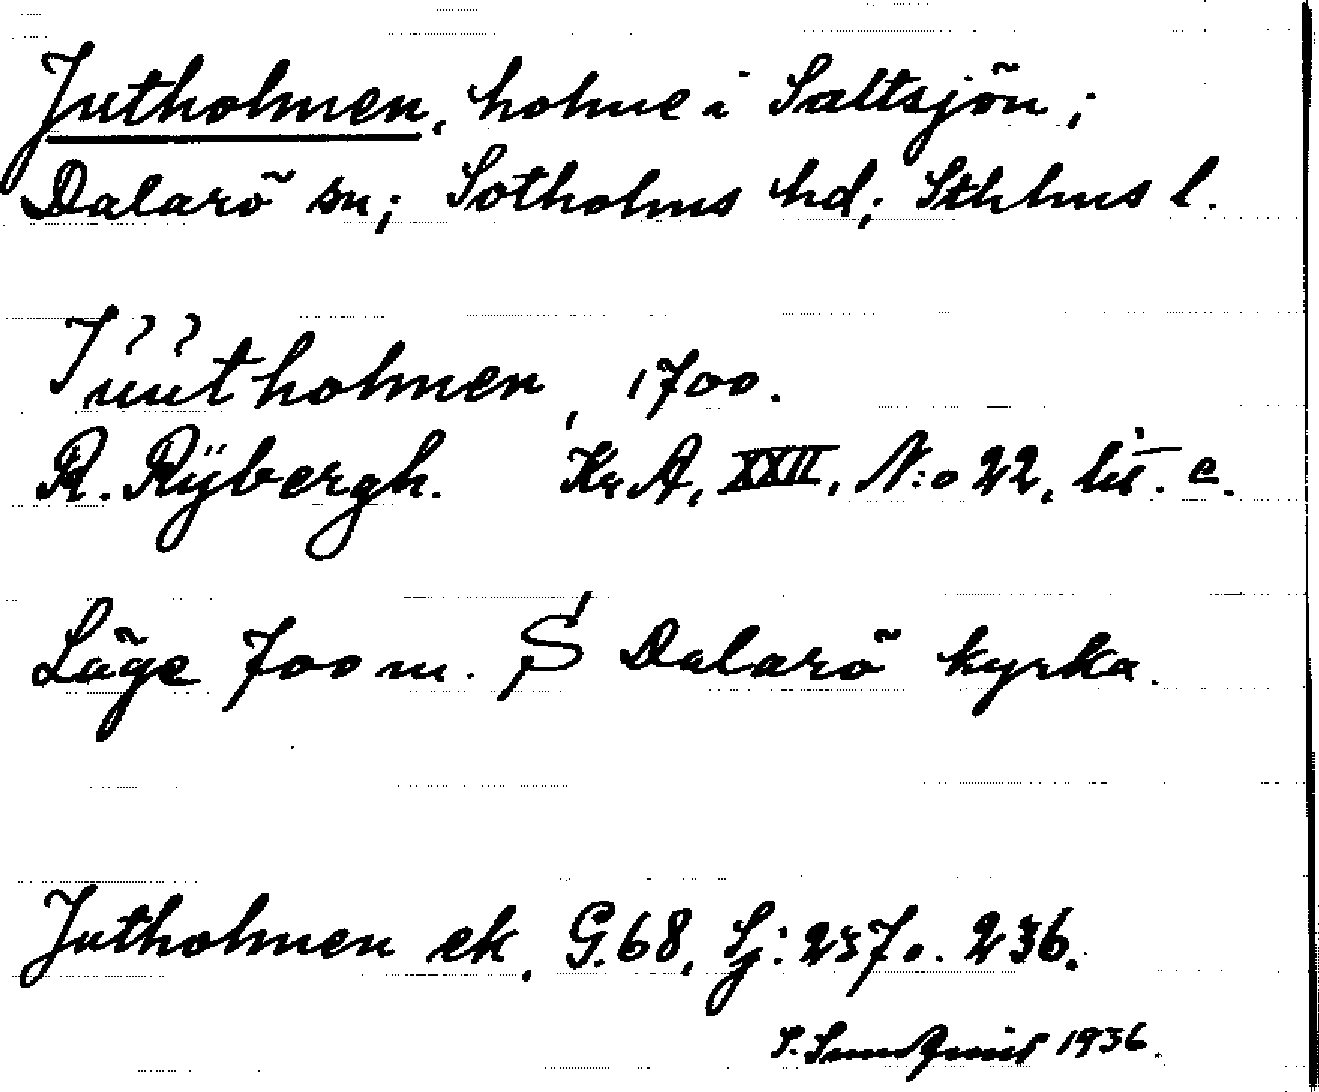 Jutholmen, holme i Saltsjön;
Dalarö sn; Sotholms hd; Sthlms l.
Juutholmen, 1700.
R. Rÿbergh. KrA, XXII, N:o 22, lit. c.
Läge 700 m. S Dalarö kyrka.
Jutholmen ek. G.68, Sj: 257 o. 236.
S. Sundqvist 1936.